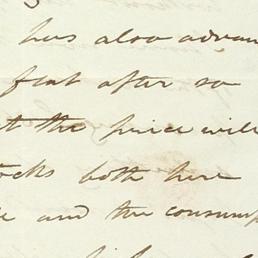 has also advan
feat after so
t the price will
ocks both here
e and the consump